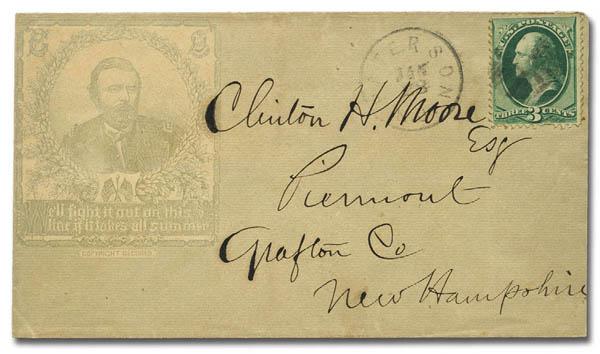 We'll fight it out on this
line if it takes all summer
COPYRIGHT SECURED
TERSON
JAN
U.S. POSTAGE
THREE 3 CENTS
Clinton H. Moore
Esq
Piermont
Grafton Co
New Hampshire